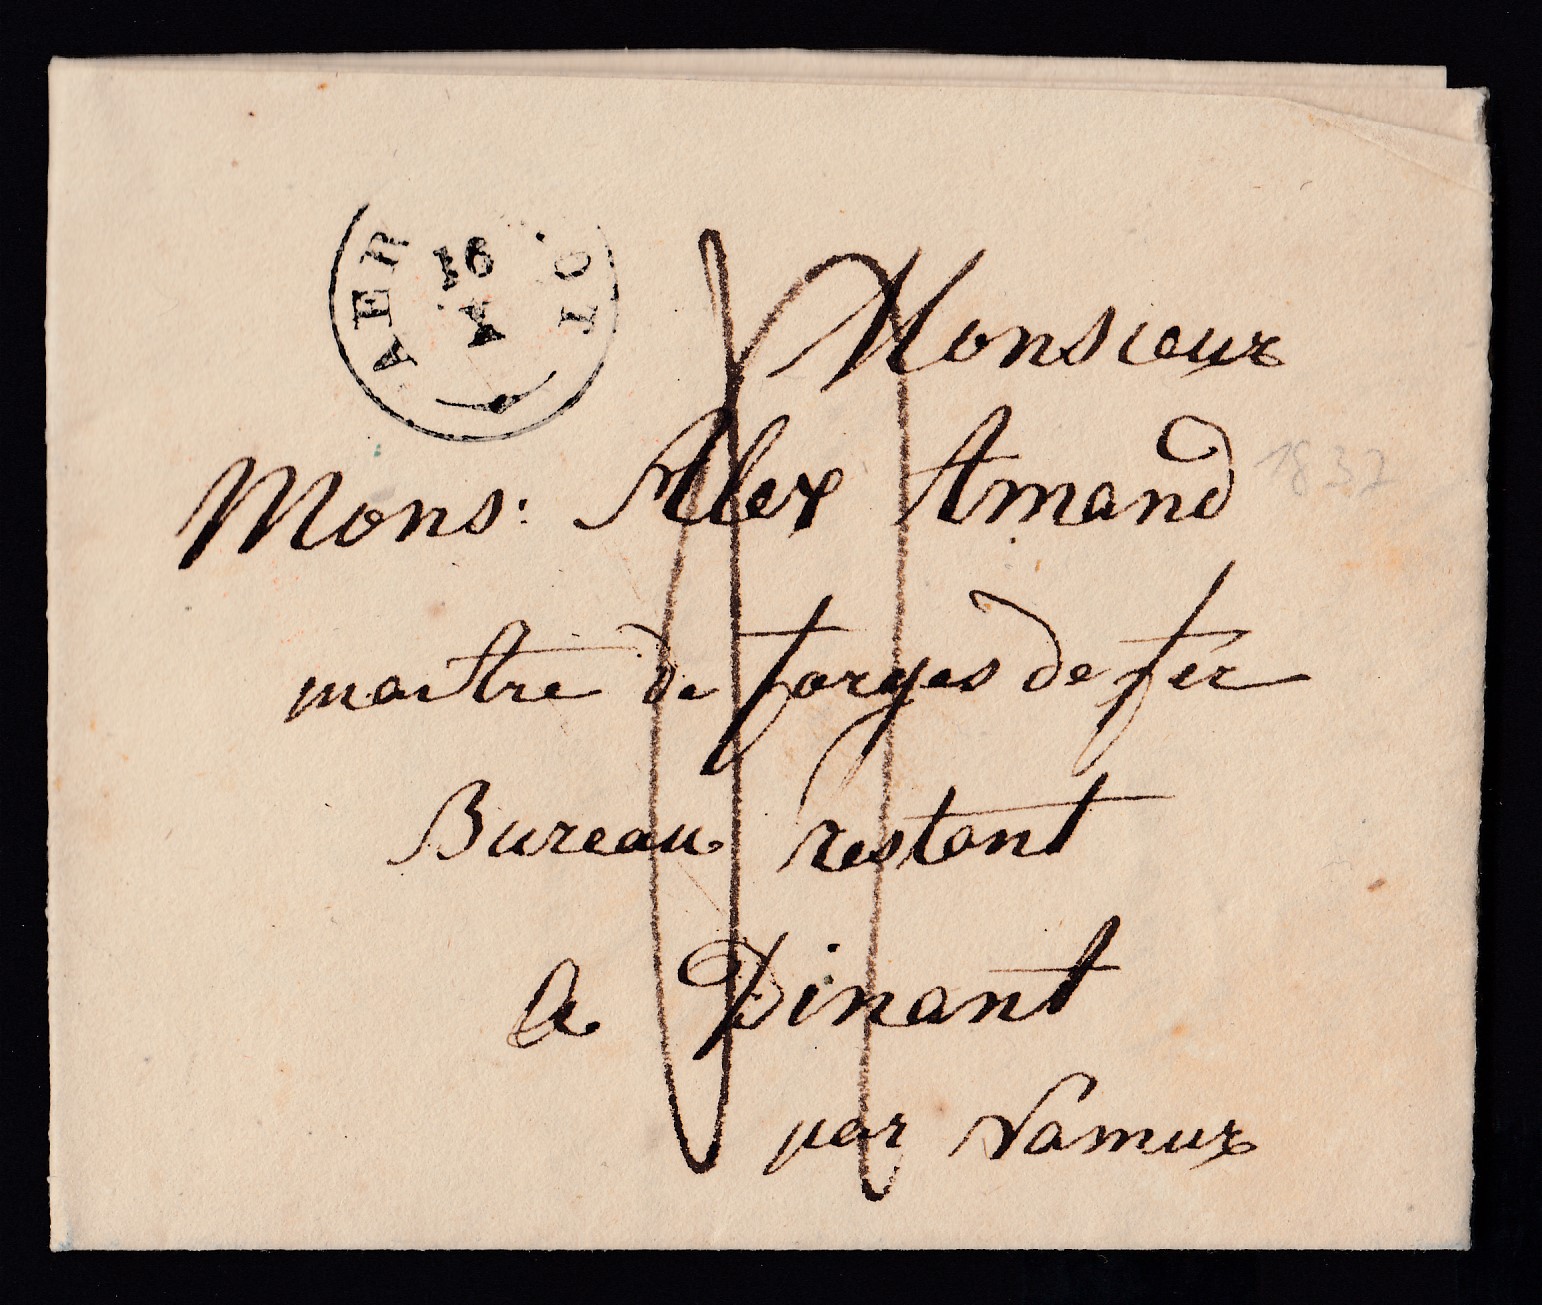 AER
16
Monsieur
Mons: Alex Amand
1837
maitre de forges de fer
Bureau restant
a Dinant
par Namur